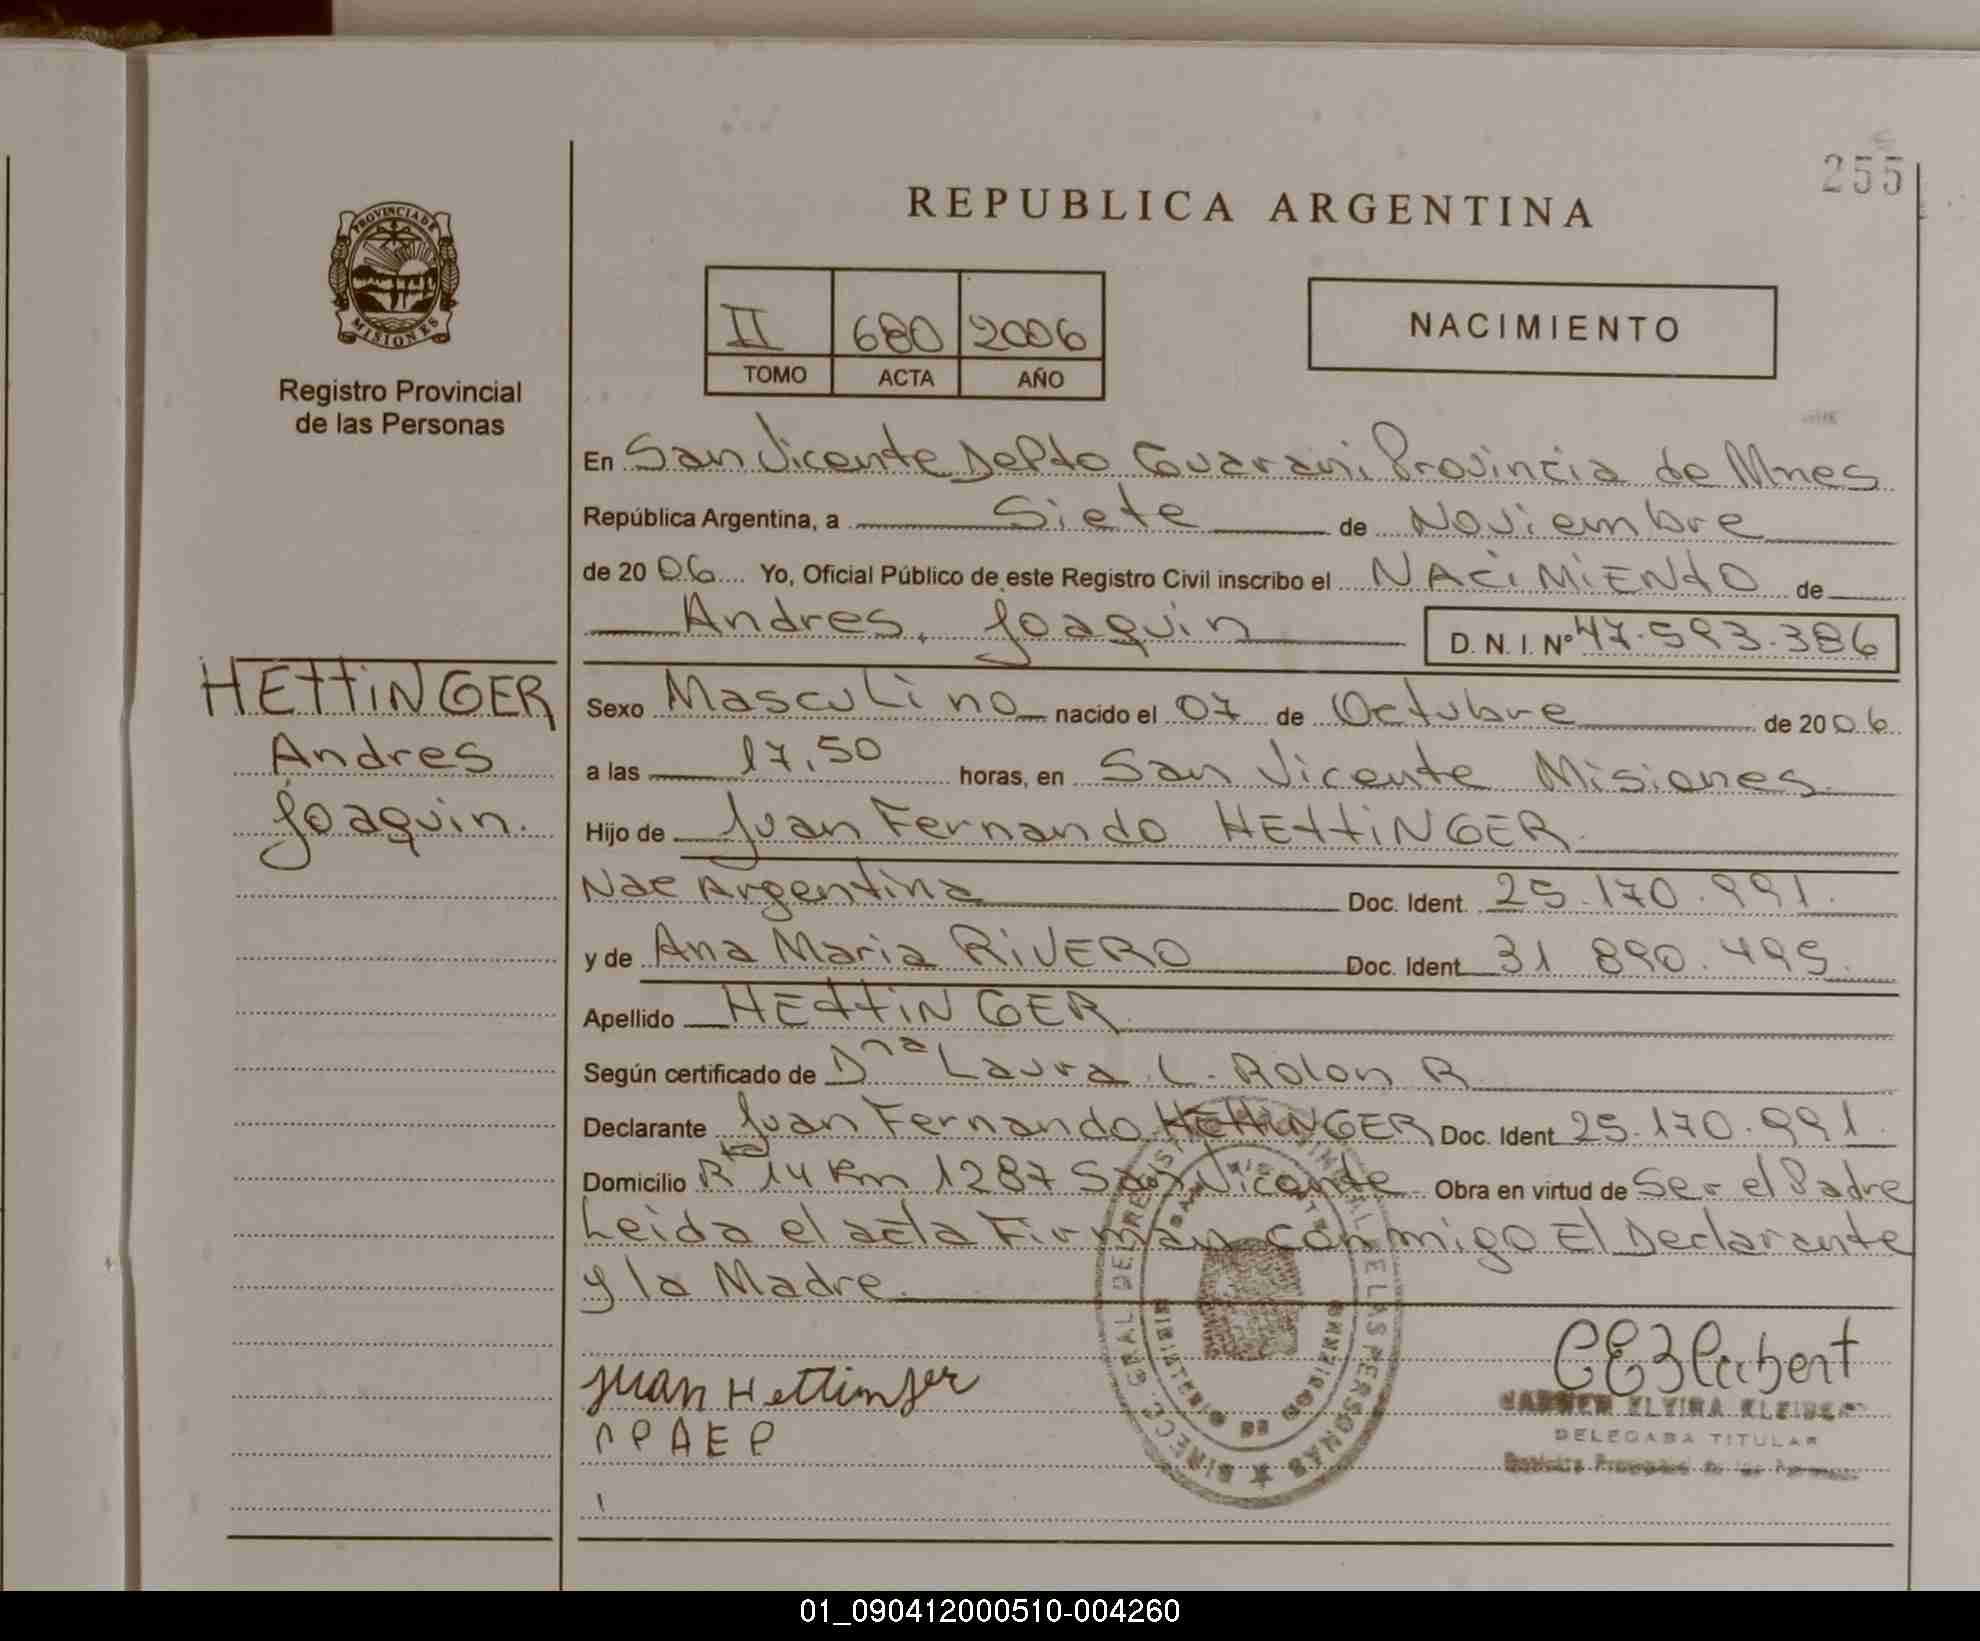 255
REPUBLICA ARGENTINA
PROVINCIA DE
MISIONES
Registro Provincial
de las Personas
II 680 2006
TOMO ACTA AÑO
NACIMIENTO
En San Vicente Depto Guarani Provincia de Mnes
República Argentina, a Siete de Noviembre
de 2006 Yo, Oficial Público de este Registro Civil inscribo el NACiMiENtO de
Andres Joaquin D. N. I. Nº 47.593.386
HEttiNGER
Andres
Joaquin.
Sexo Masculino nacido el 07 de Octubre de 2006
a las 17,50 horas, en San Vicente Misiones
Hijo de Juan Fernando HEttiNGER
Nac Argentina Doc. Ident. 25.170.991.
y de Ana Maria RiVERO Doc. Ident 31 890.495.
Apellido HEttiNGER
Según certificado de Dña Laura L. Rolon R
Declarante Juan Fernando HEttiNGER Doc. Ident 25.170.991.
Domicilio R 14 Km 1287 San Vicente Obra en virtud de Ser el Padre
Leida el acta Firman conmigo El Declarante
y la Madre.
Juan Hettinger
DELEGADA TITULAR
01_090412000510-004260